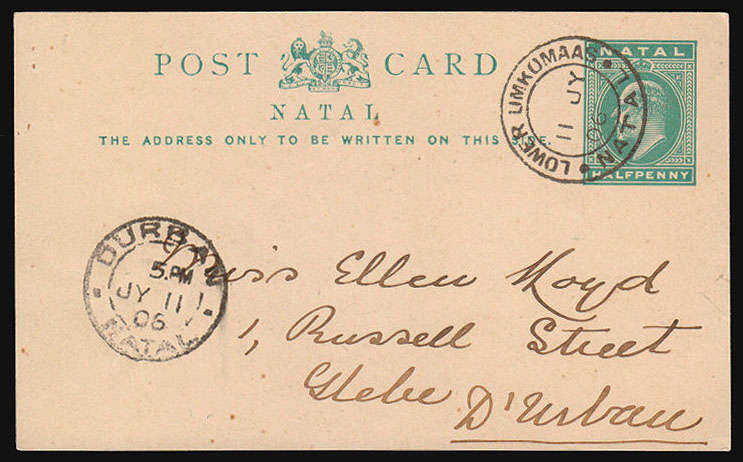 POST CARD
NATAL
THE ADDRESS ONLY TO BE WRITTEN ON THIS
NATAL
HALFPENNY
LOWER UMKOMAAS NATAL
11 JY
06
DURBAN
5.PM
JY 11
06
NATAL
Miss Ellen Moyd
1, Russell Street
Glebe D'Urban